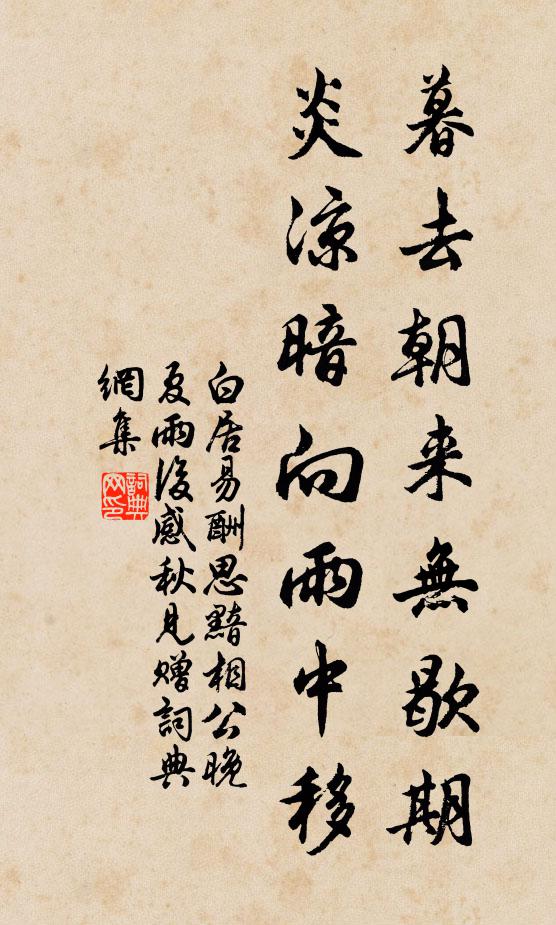 暮去朝来無歇期
炎凉暗向雨中移
白居易酬思黯相公晚
夏雨後感秋見贈詞典
網集
詞典
网印